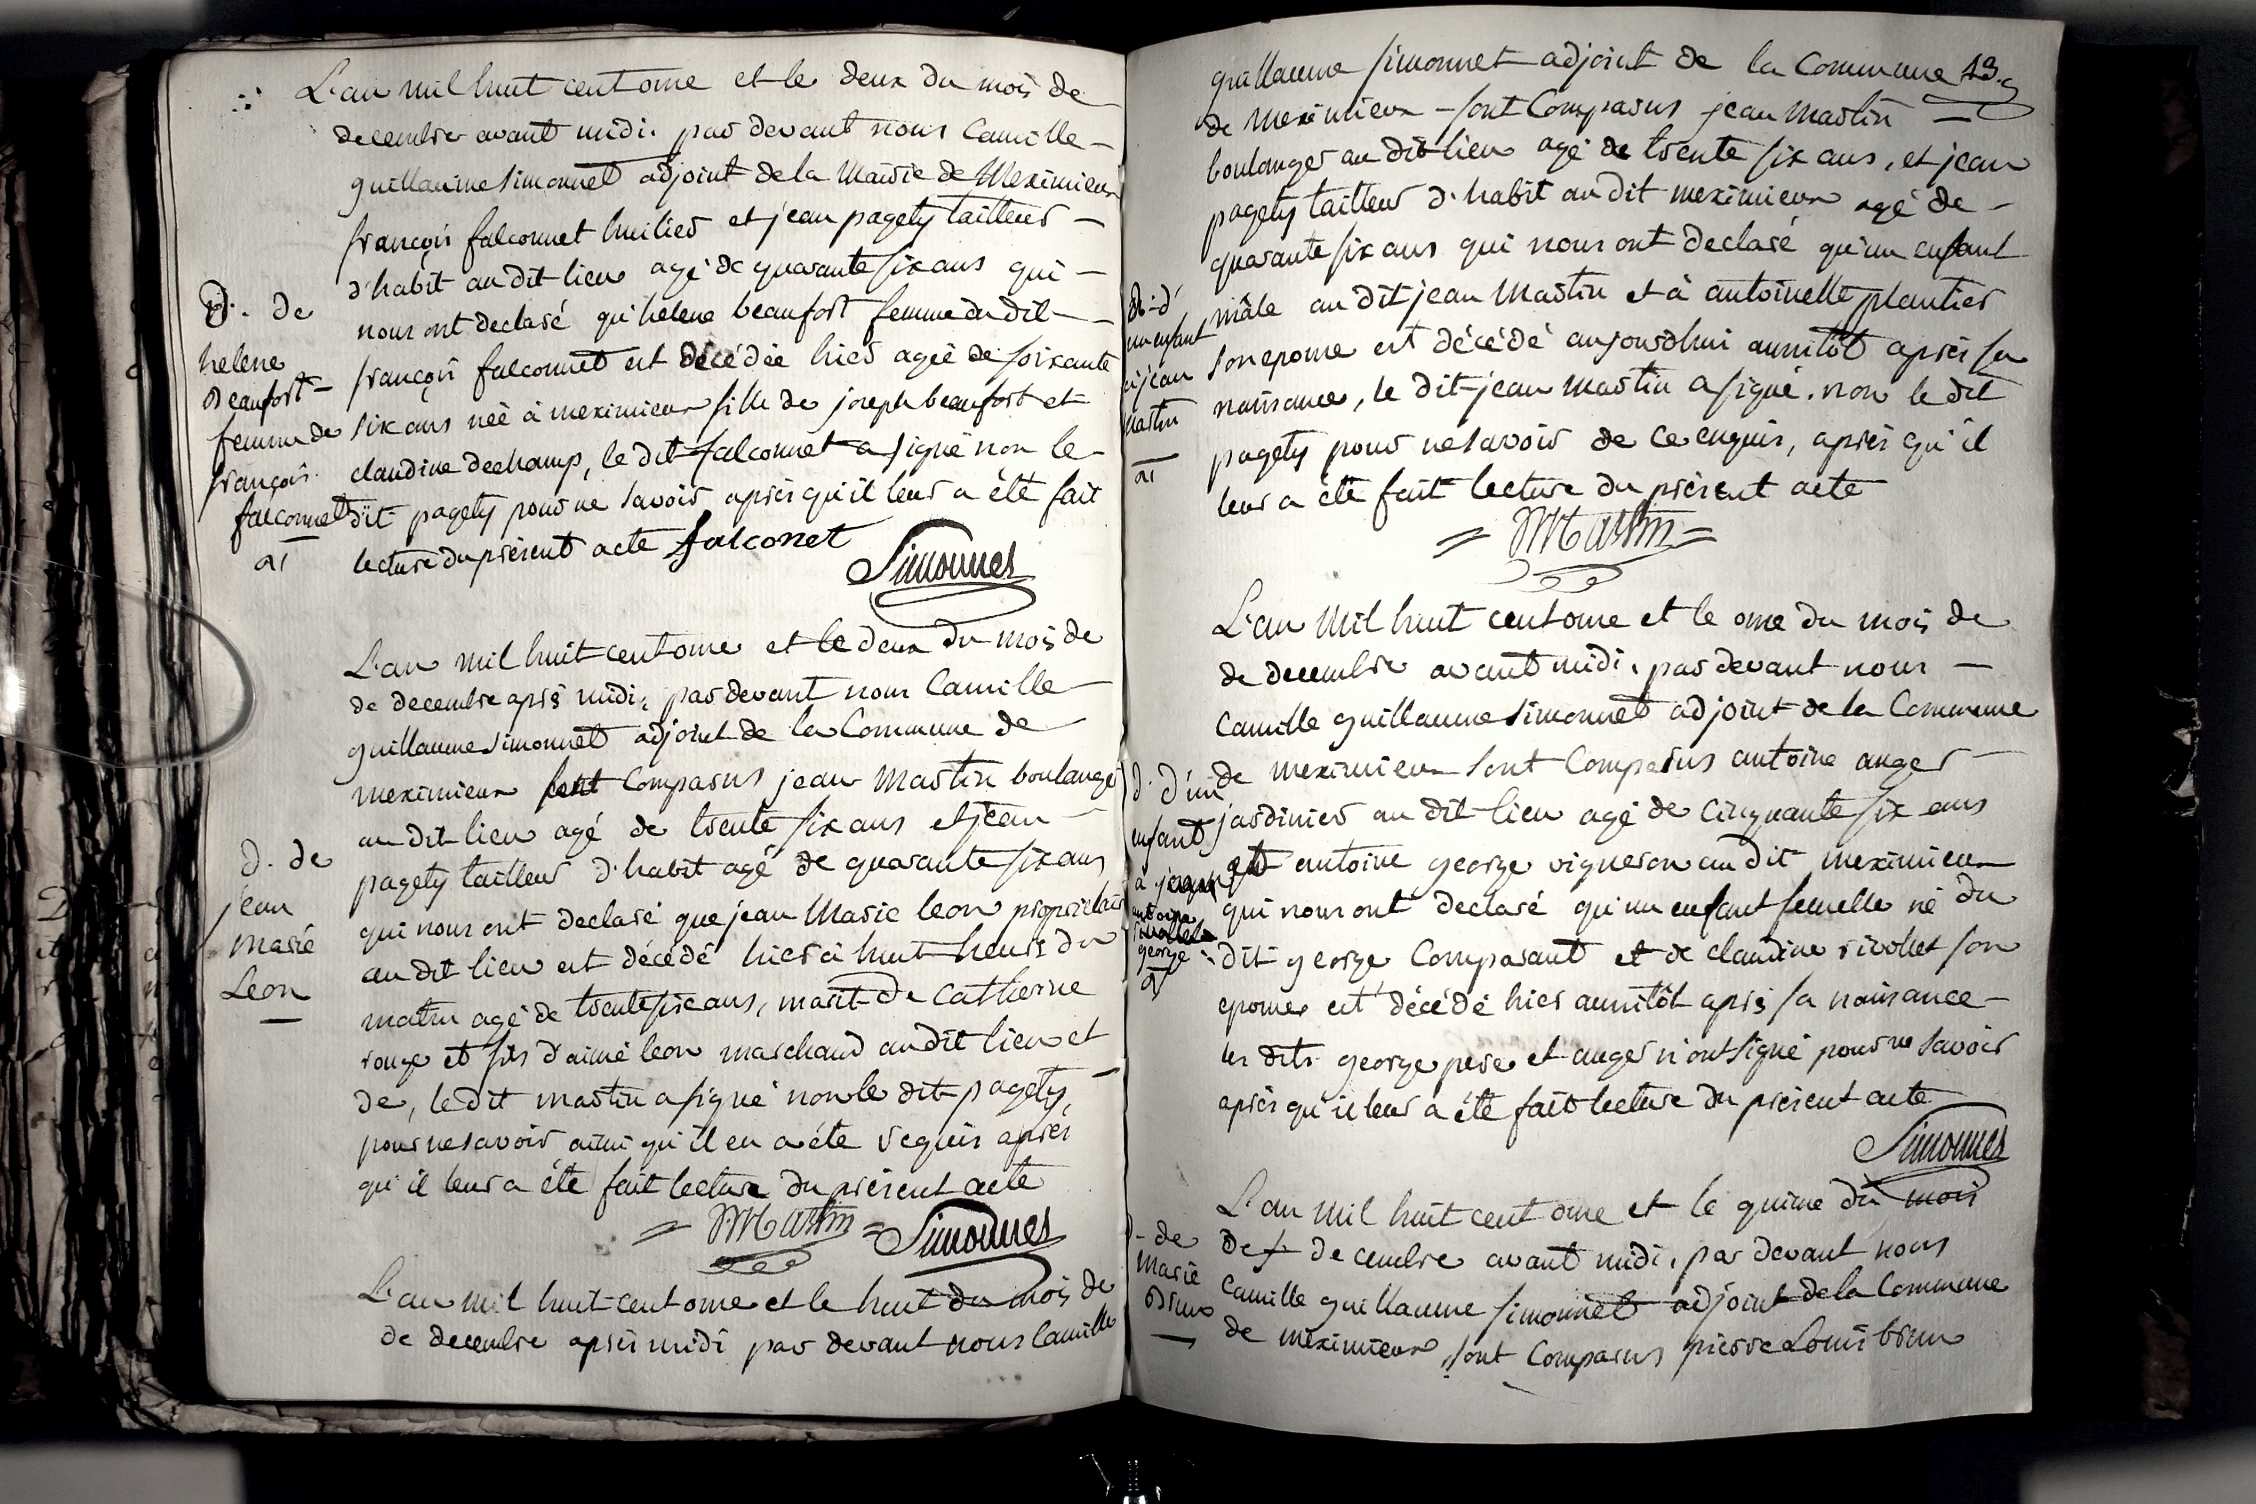 L'an mil huit cent onze et le deux du mois de
decembre avant midi. par devant nous Camille
guillaume Simonnet adjoint de la Mairie de Meximieux
françois falconnet huilier et jean pagety tailleur
d'habit au dit lieu agé de quarante six ans qui
nous ont declaré qu'helene beaufort femme du dit
françois falconnet est décédée hier agée de soixante
six ans née à meximieux fille de joseph beaufort et
claudine dechamp, le dit falconnet a signé non le
dit pagety pour ne savoir après qu'il leur a été fait
lecture du présent acte falconet
Simonnet
D. de
helene
Beaufort
femme de
françois
falconnet
L'an mil huit cent onze et le deux du mois de
de decembre après midi, par devant nous Camille
guillaume Simonnet adjoint de la Commune de
meximieux sont Comparus jean Martin boulanger
au dit lieu agé de trente six ans et jean
pagety tailleur d'habit agé de quarante six ans
qui nous ont declaré que jean Marie leon proprietaire
au dit lieu est décédé hier à huit heures du
matin agé de trente six ans, marit de Catherine
rouge et fils d'aimé leon marchand au dit lieu et
de, le dit martin a signé non le dit pagety,
pour ne savoir ainsi qu'il en a été requis après
qu'il leur a été fait lecture du présent acte
JMartin Simonnet
D. de
jean
marie
Leon
L'an mil huit cent onze et le huit du mois de
de decembre après midi par devant nous Camille
guillaume Simonnet adjoint de la Commune 13.
de Meximieux sont Comparus jean Martin
boulanger au dit lieu agé de trente six ans, et jean
pagety tailleur d'habit au dit meximieux agé de
quarante six ans qui nous ont declaré qu'un enfant
mâle au dit jean Martin et à antoinette plantier
son epouse est décédé aujourdhui aussitôt après sa
naissance, le dit jean Martin a signé. non le dit
pagety pour ne savoir de ce enquis, après qu'il
leur a été fait lecture du présent acte
JMartin
D. d'
un enfant
à jean
Martin
L'an Mil huit cent onze et le onze du mois de
de decembre avant midi, par devant nous
Camille guillaume Simonnet adjoint de la Commune
de meximieux sont Comparus antoine auger
jardinier au dit lieu agé de cinquante six ans
et antoine george vigneron au dit meximieux
qui nous ont declaré qu'un enfant femelle né du
dit george Comparant et de claudine rivollet son
epouse est décédé hier aussitôt après sa naissance
les dits george pere et auger n'ont signé pour ne savoir
après qu'il leur a été fait lecture du présent acte
Simonnet
D. d'un
enfant
à
antoine
george
L'an mil huit cent onze et le quinze du mois
de decembre avant midi, par devant nous
Camille guillaume Simonnet adjoint de la Commune
de meximieux, sont Comparus pierre Louis brun
D. de
Marie
Brun